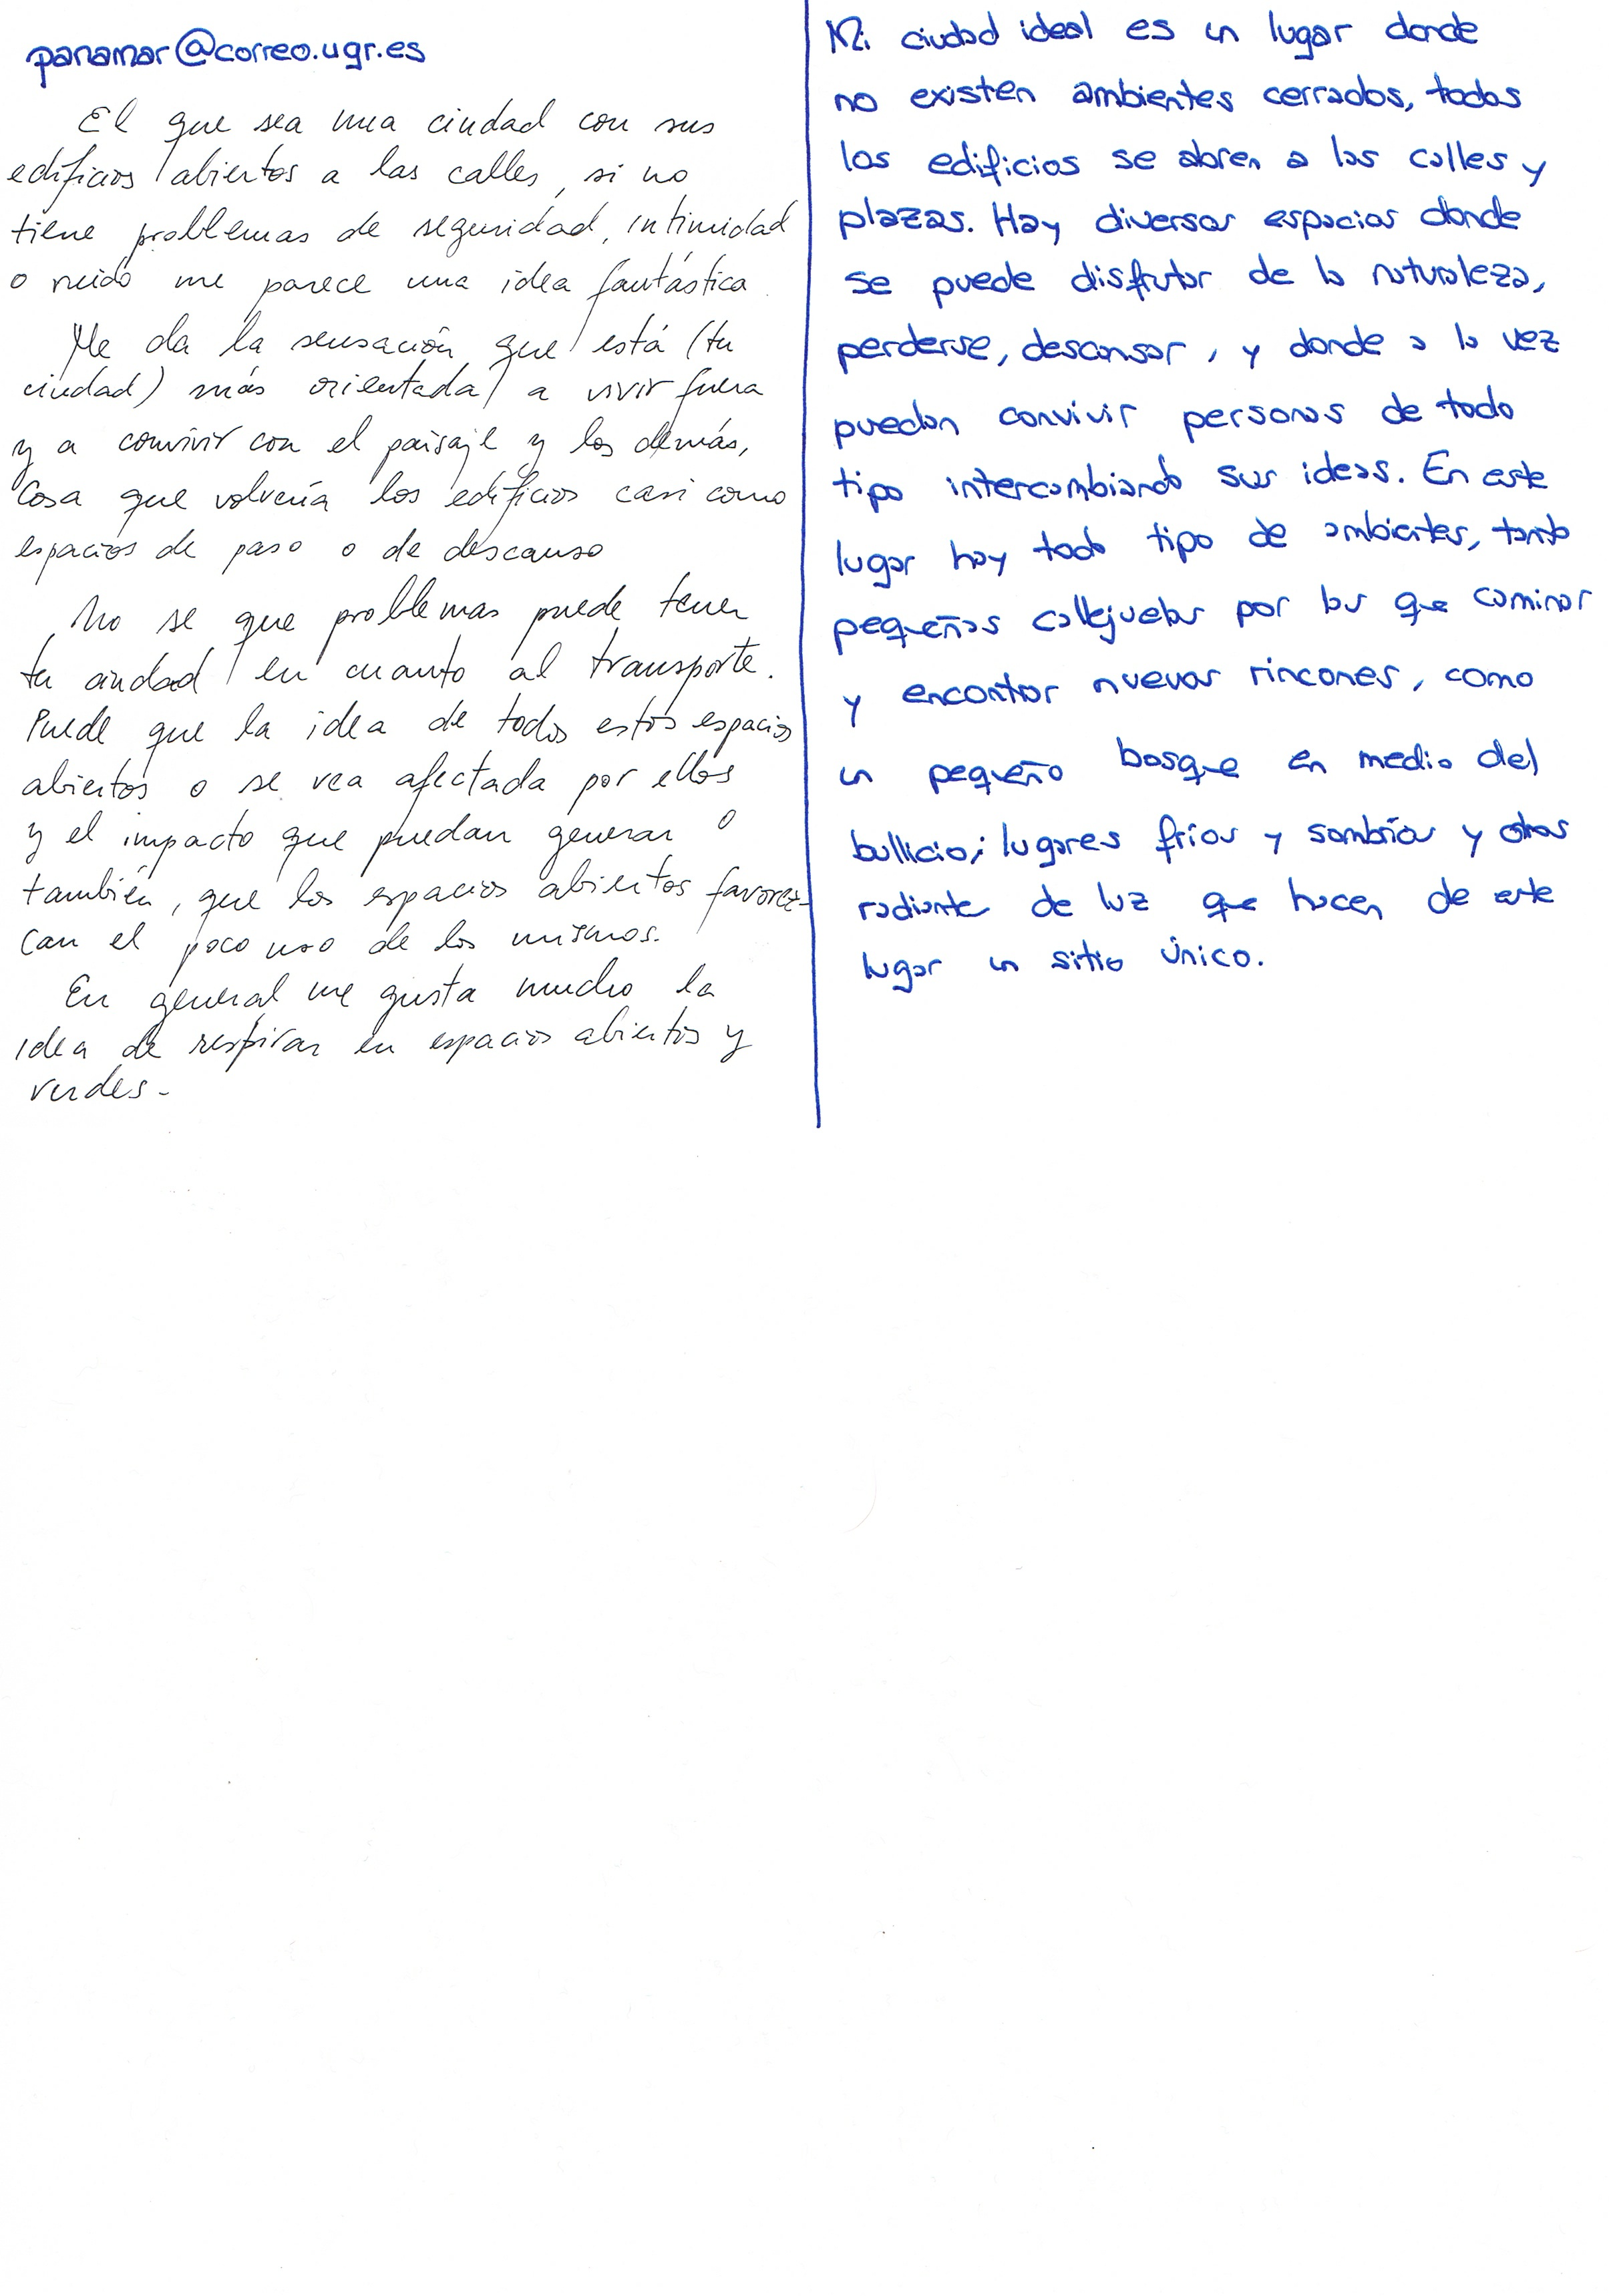 panamar@correo.ugr.es
El que sea una ciudad con sus
edificios abiertos a las calles, si no
tiene problemas de seguridad, intimidad
o ruido me parece una idea fantástica.
Me da la sensación que está (tu
ciudad) más orientada a vivir fuera
y a convivir con el paisaje y los demás,
Cosa que volvería los edificios casi como
espacios de paso o de descanso
No se que problemas puede tener
tu ciudad en cuanto al transporte.
Puede que la idea de todos estos espacios
abiertos o se vea afectada por ellos
y el impacto que puedan generar o
también, que los espacios abiertos favorez-
can el poco uso de los mismos.
En general me gusta mucho la
idea de respirar en espacios abiertos y
verdes.-
Mi ciudad ideal es un lugar donde
no existen ambientes cerrados, todos
los edificios se abren a las calles y
plazas. Hay diversos espacios donde
se puede disfrutar de la naturaleza,
perderse, descansar, y donde a la vez
puedan convivir personas de todo
tipo intercambiando sus ideas. En este
lugar hay todo tipo de ambientes, tanto
pequeñas callejuelas por las que caminar
y encontrar nuevos rincones, como
un pequeño bosque en medio del
bullicio; lugares fríos y sombríos y otros
radiantes de luz que hacen de este
lugar un sitio único.